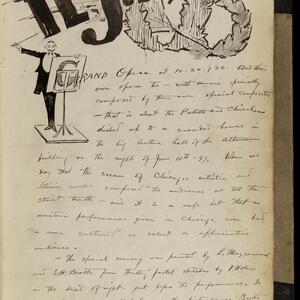 GRAND Opera at 10.20.930. And their
own opera too — with music specially
composed by the special composers
— that is what the Palette and Chisel
dished up to a crowded house in
the big lecture hall of the Athenaeum
building on the night of June 10th - 97. When we
say that the cream of Chicago's artistic and
literary circles composed the audience we tell the
strict truth — and it is a safe bet that no
amateur performance given in Chicago, ever had
a more cultured or select or appreciative
audience.
— The special scenery was painted by
and from pastel sketches by
in the dead of night just before the performance. In